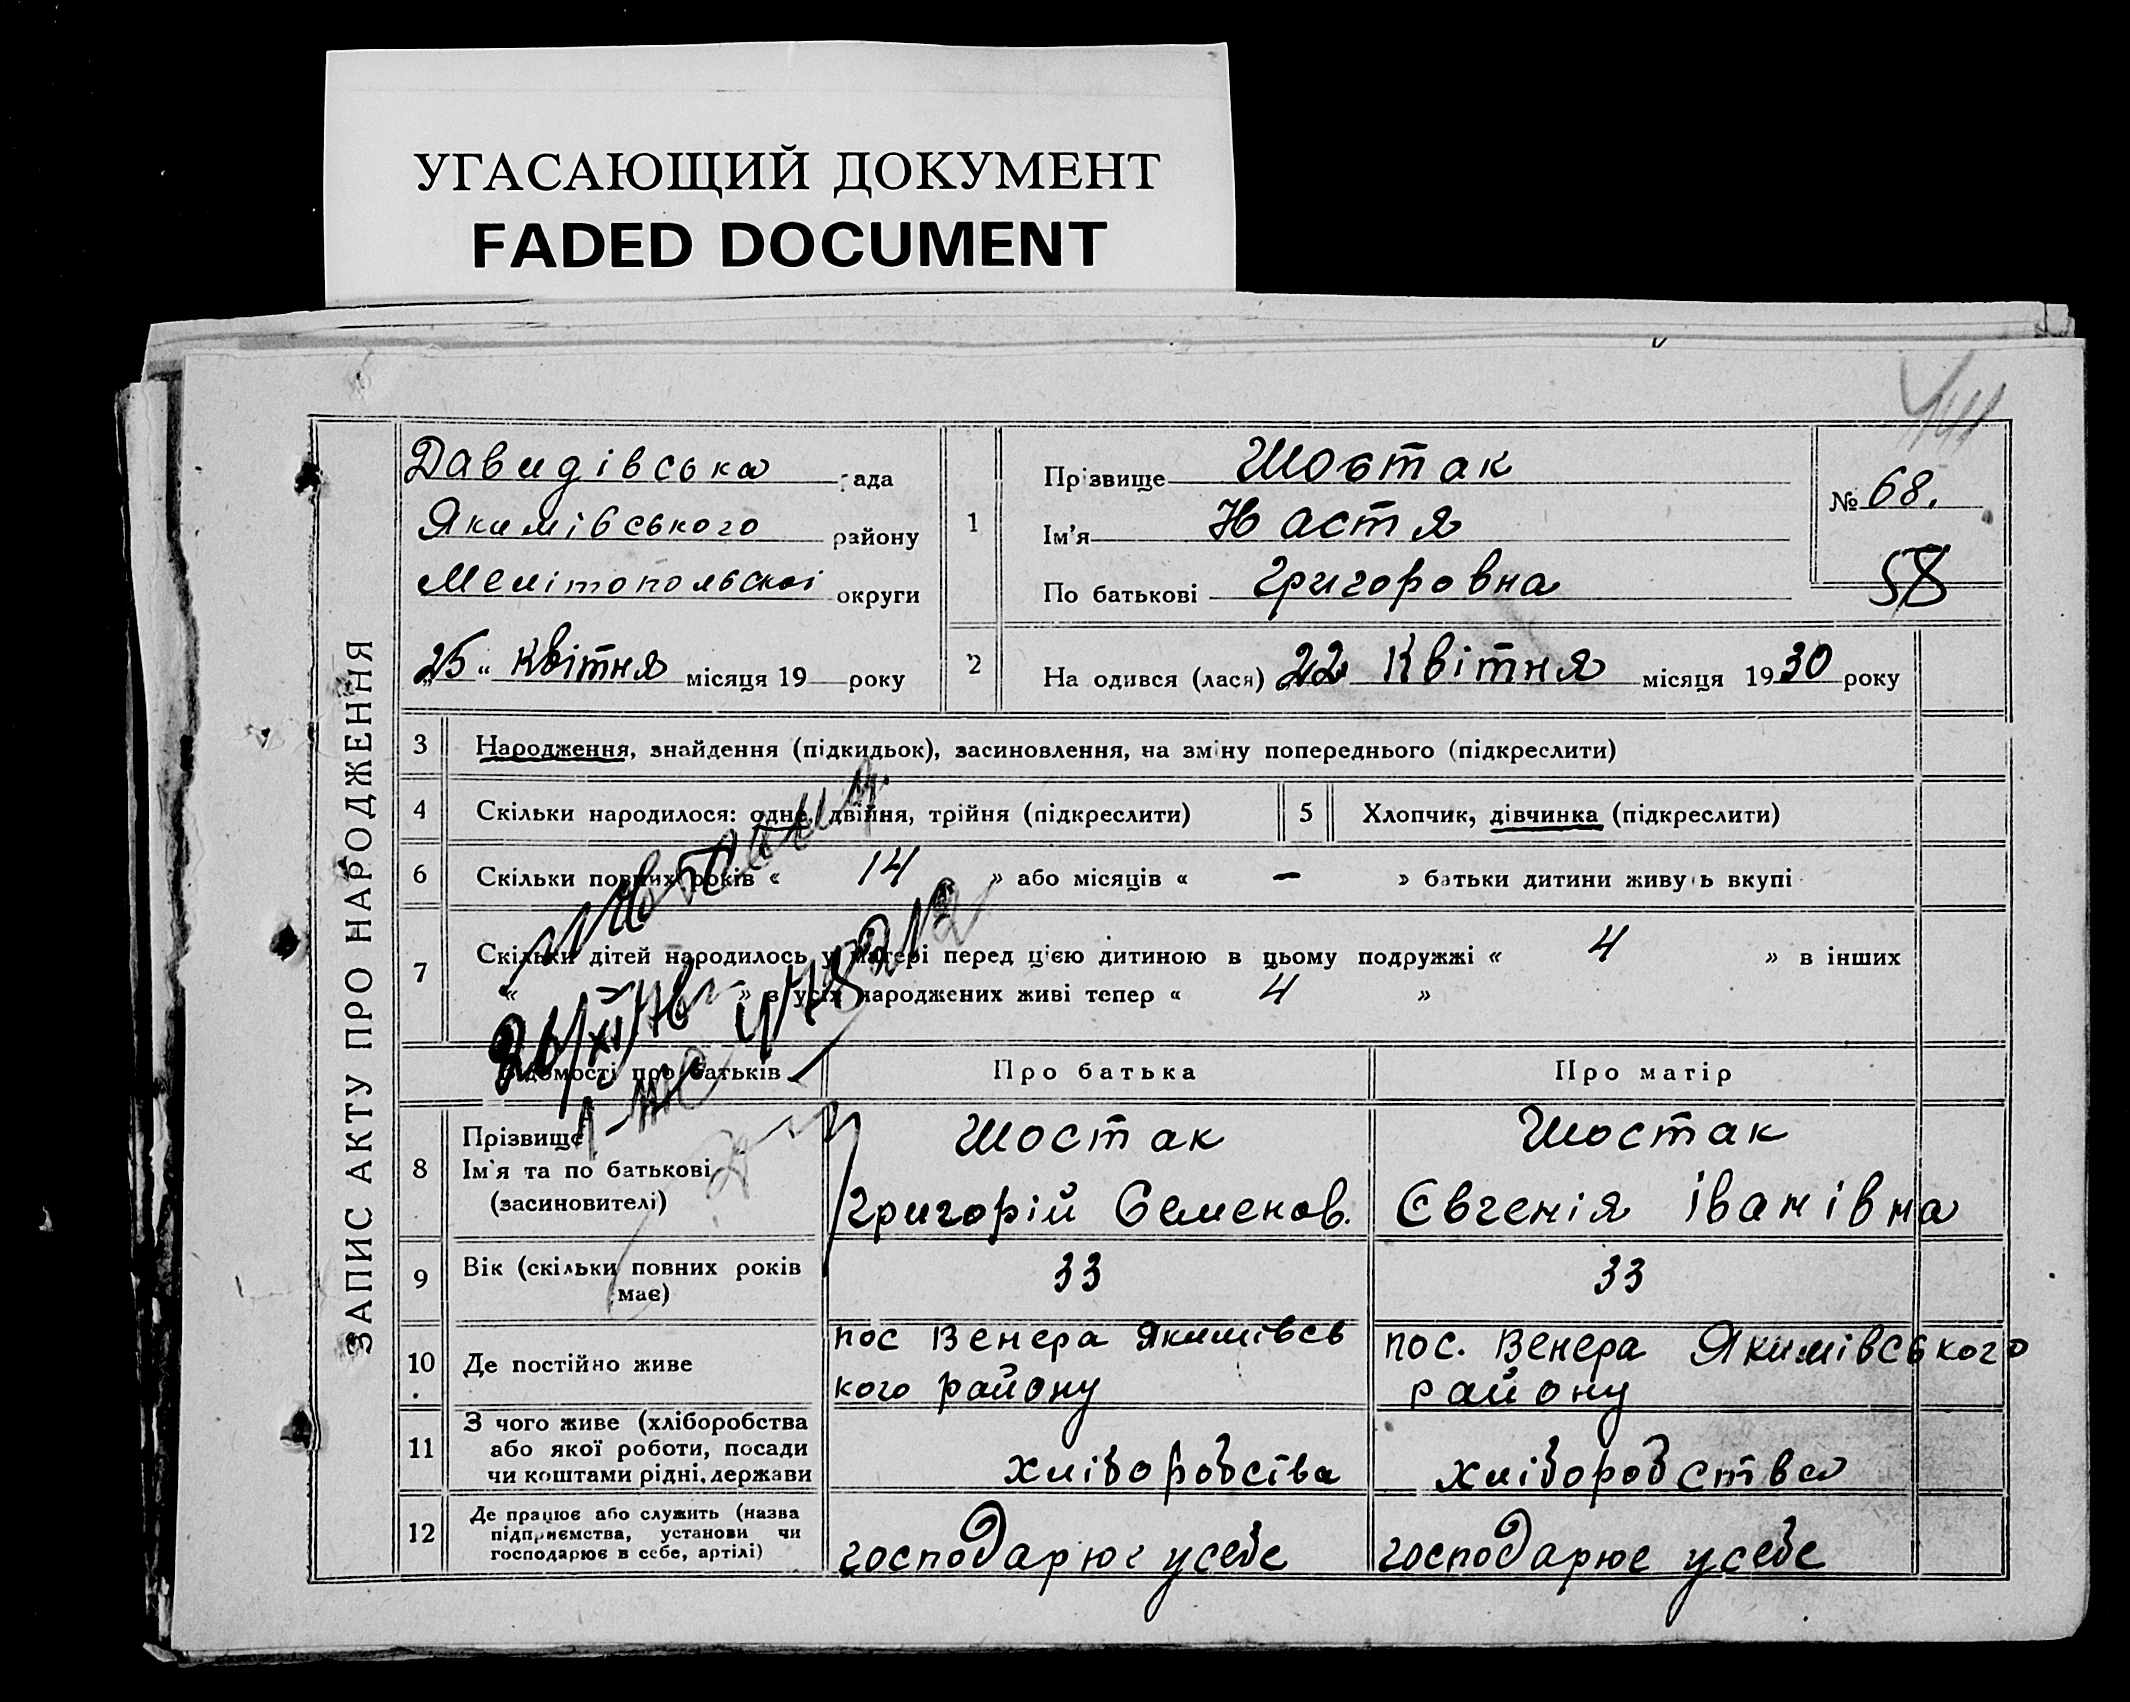 УГАСАЮЩИЙ ДОКУМЕНТ
FADED DOCUMENT
ЗАПИС АКТУ ПРО НАРОДЖЕННЯ
Давидівська рада
Якимівського району
Мелітопольскої округи
„25“ Квітня місяця 19 року
1
Прізвище Шостак
Ім'я Настя
По батькові Григоровна
№ 68.
58
2
На одився (лася) „22 Квітня місяця 1930 року
3 Народження, знайдення (підкидьок), засиновлення, на зміну попереднього (підкреслити)
4 Скільки народилося: одне, двійня, трійня (підкреслити)
5 Хлопчик, дівчинка (підкреслити)
6 Скільки повних років « 14 » або місяців « – » батьки дитини живуть вкупі
7 Скільки дітей народилось у матері перед цією дитиною в цьому подружжі « 4 » в інших
« » в усіх народжених живі тепер « 4 »
Відомості про батьків
Про батька
Про матір
8 Прізвище
Ім'я та по батькові
(засиновителі)
Шостак
Григорій Семенов.
Шостак
Євгенія Іванівна
9 Вік (скільки повних років
має)
33
33
10 Де постійно живе
пос Венера Якимівсь
кого району
пос. Венера Якимівського
району
11 З чого живе (хліборобства
або якої роботи, посади
чи коштами рідні, держави
хліборобства
хліборобства
12 Де працює або служить (назва
підприємства, установи чи
господарює в себе, артілі)
господарює у себе
господарює у себе